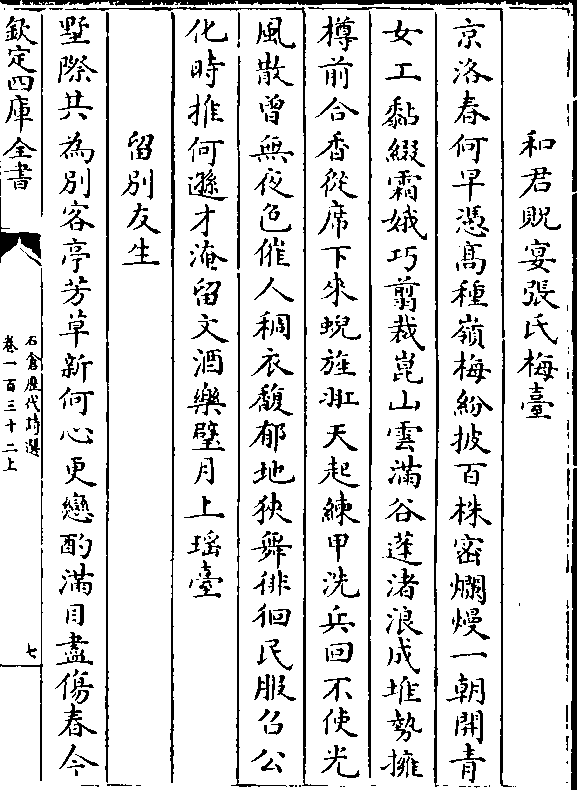 和君貺宴張氏梅臺
京洛春何早憑高種嶺梅紛披百株密爛熳一朝開青
女工黏綴霜娥巧翦裁崑山雲滿谷蓬渚浪成堆勢擁
樽前合香從席下來蜺旌泚天起練甲洗兵回不使光
風散曾無夜色催人稠衣馥郁地狹舞徘徊民服召公
化時推何遜才淹留文酒樂璧月上瑶臺
留别友生
墅際共為别客亭芳草新何心更戀酌滿目盡傷春今
欽定四庫全書
石倉歴代詩選
卷一百三十二上
七